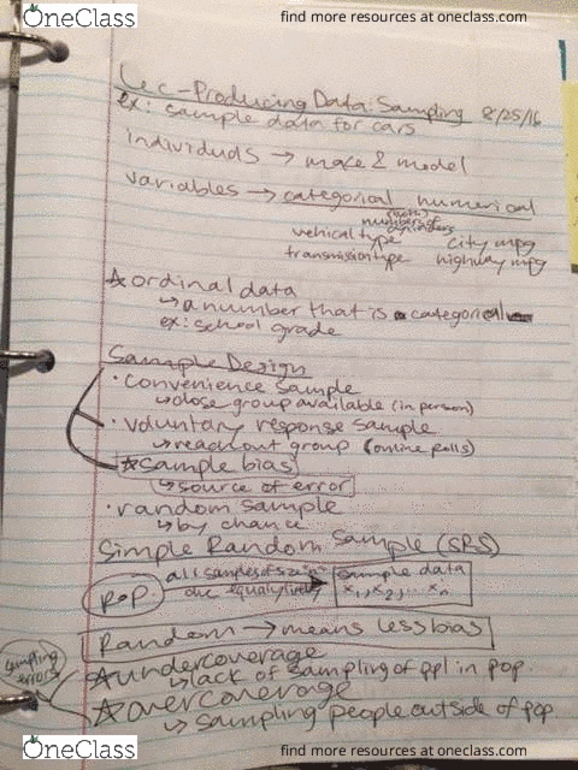 OneClass
find more resources at oneclass.com
Lec - Producing Data: Sampling 8/25/16
ex: sample data for cars
individuals → make & model
variables → categorial numerical
(both)
numbers of cylinders
vehical type city mpg
transmission type highway mpg
☆ ordinal data
↳ a number that is categorical
ex: school grade
Sample Design
• convenience sample
↳ close group available (in person)
• voluntary response sample
↳ reachout group (online polls)
☆ sample bias
↳ source of error
• random sample
↳ by chance
Simple Random Sample (SRS)
POP all samples of size "n" are equaly lively sample data
x₁, x₂, ... xₙ
Random → means less bias
sampling errors
☆ undercoverage
↳ lack of sampling of ppl in pop.
☆ overcoverage
↳ sampling people outside of pop.
OneClass
find more resources at oneclass.com